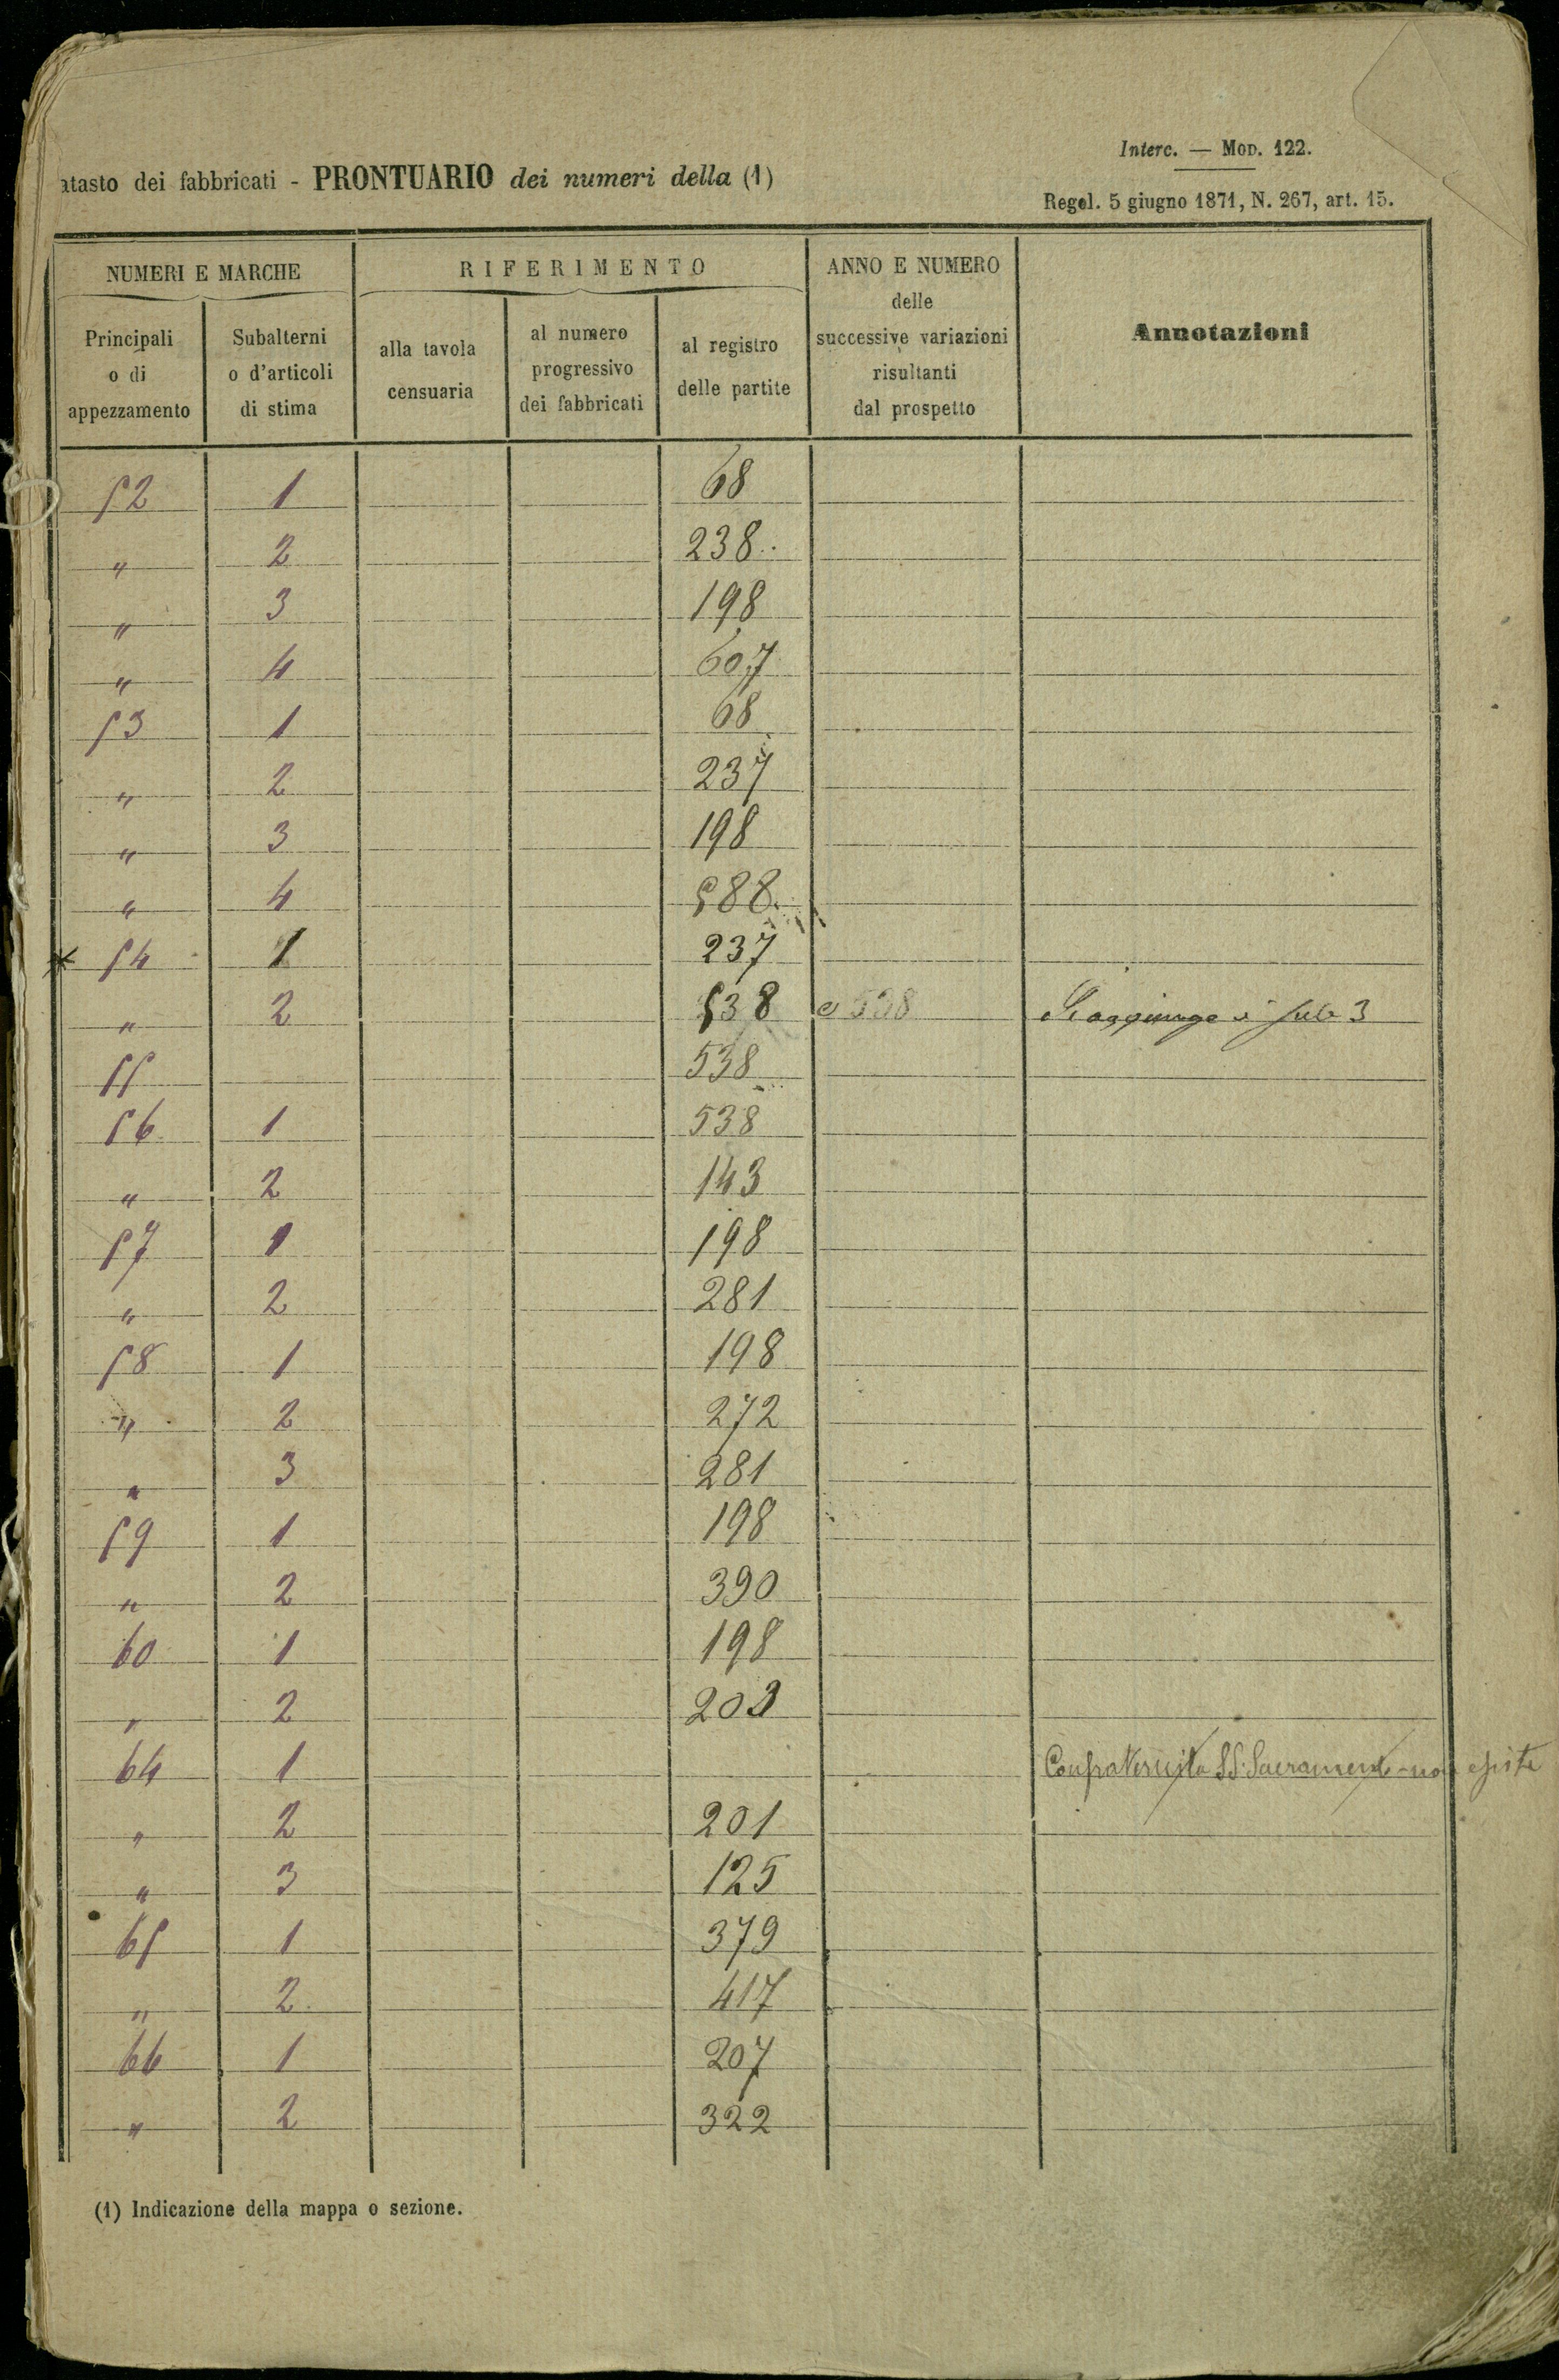 Interc. — Mod. 122.
atasto dei fabbricati - PRONTUARIO dei numeri della (1)
Regol. 5 giugno 1871, N. 267, art. 15.
NUMERI E MARCHE
RIFERIMENTO
ANNO E NUMERO
delle
successive variazioni
risultanti
dal prospetto
Annotazioni
Principali
o di
appezzamento
Subalterni
o d'articoli
di stima
alla tavola
censuaria
al numero
progressivo
dei fabbricati
al registro
delle partite
52 1 68
" 2 238
" 3 198
" 4 607
53 1 68
" 2 237
" 3 198
" 4 588
54 1 237
" 2 538 e 538 Si aggiunge il sub 3
55 538
56 1 538
" 2 143
57 1 198
" 2 281
58 1 198
" 2 272
" 3 281
59 1 198
" 2 390
60 1 198
" 2 203
64 1 Confraternita SS. Sacramento - non esiste
" 2 201
" 3 125
65 1 379
" 2 417
66 1 207
" 2 322
(1) Indicazione della mappa o sezione.